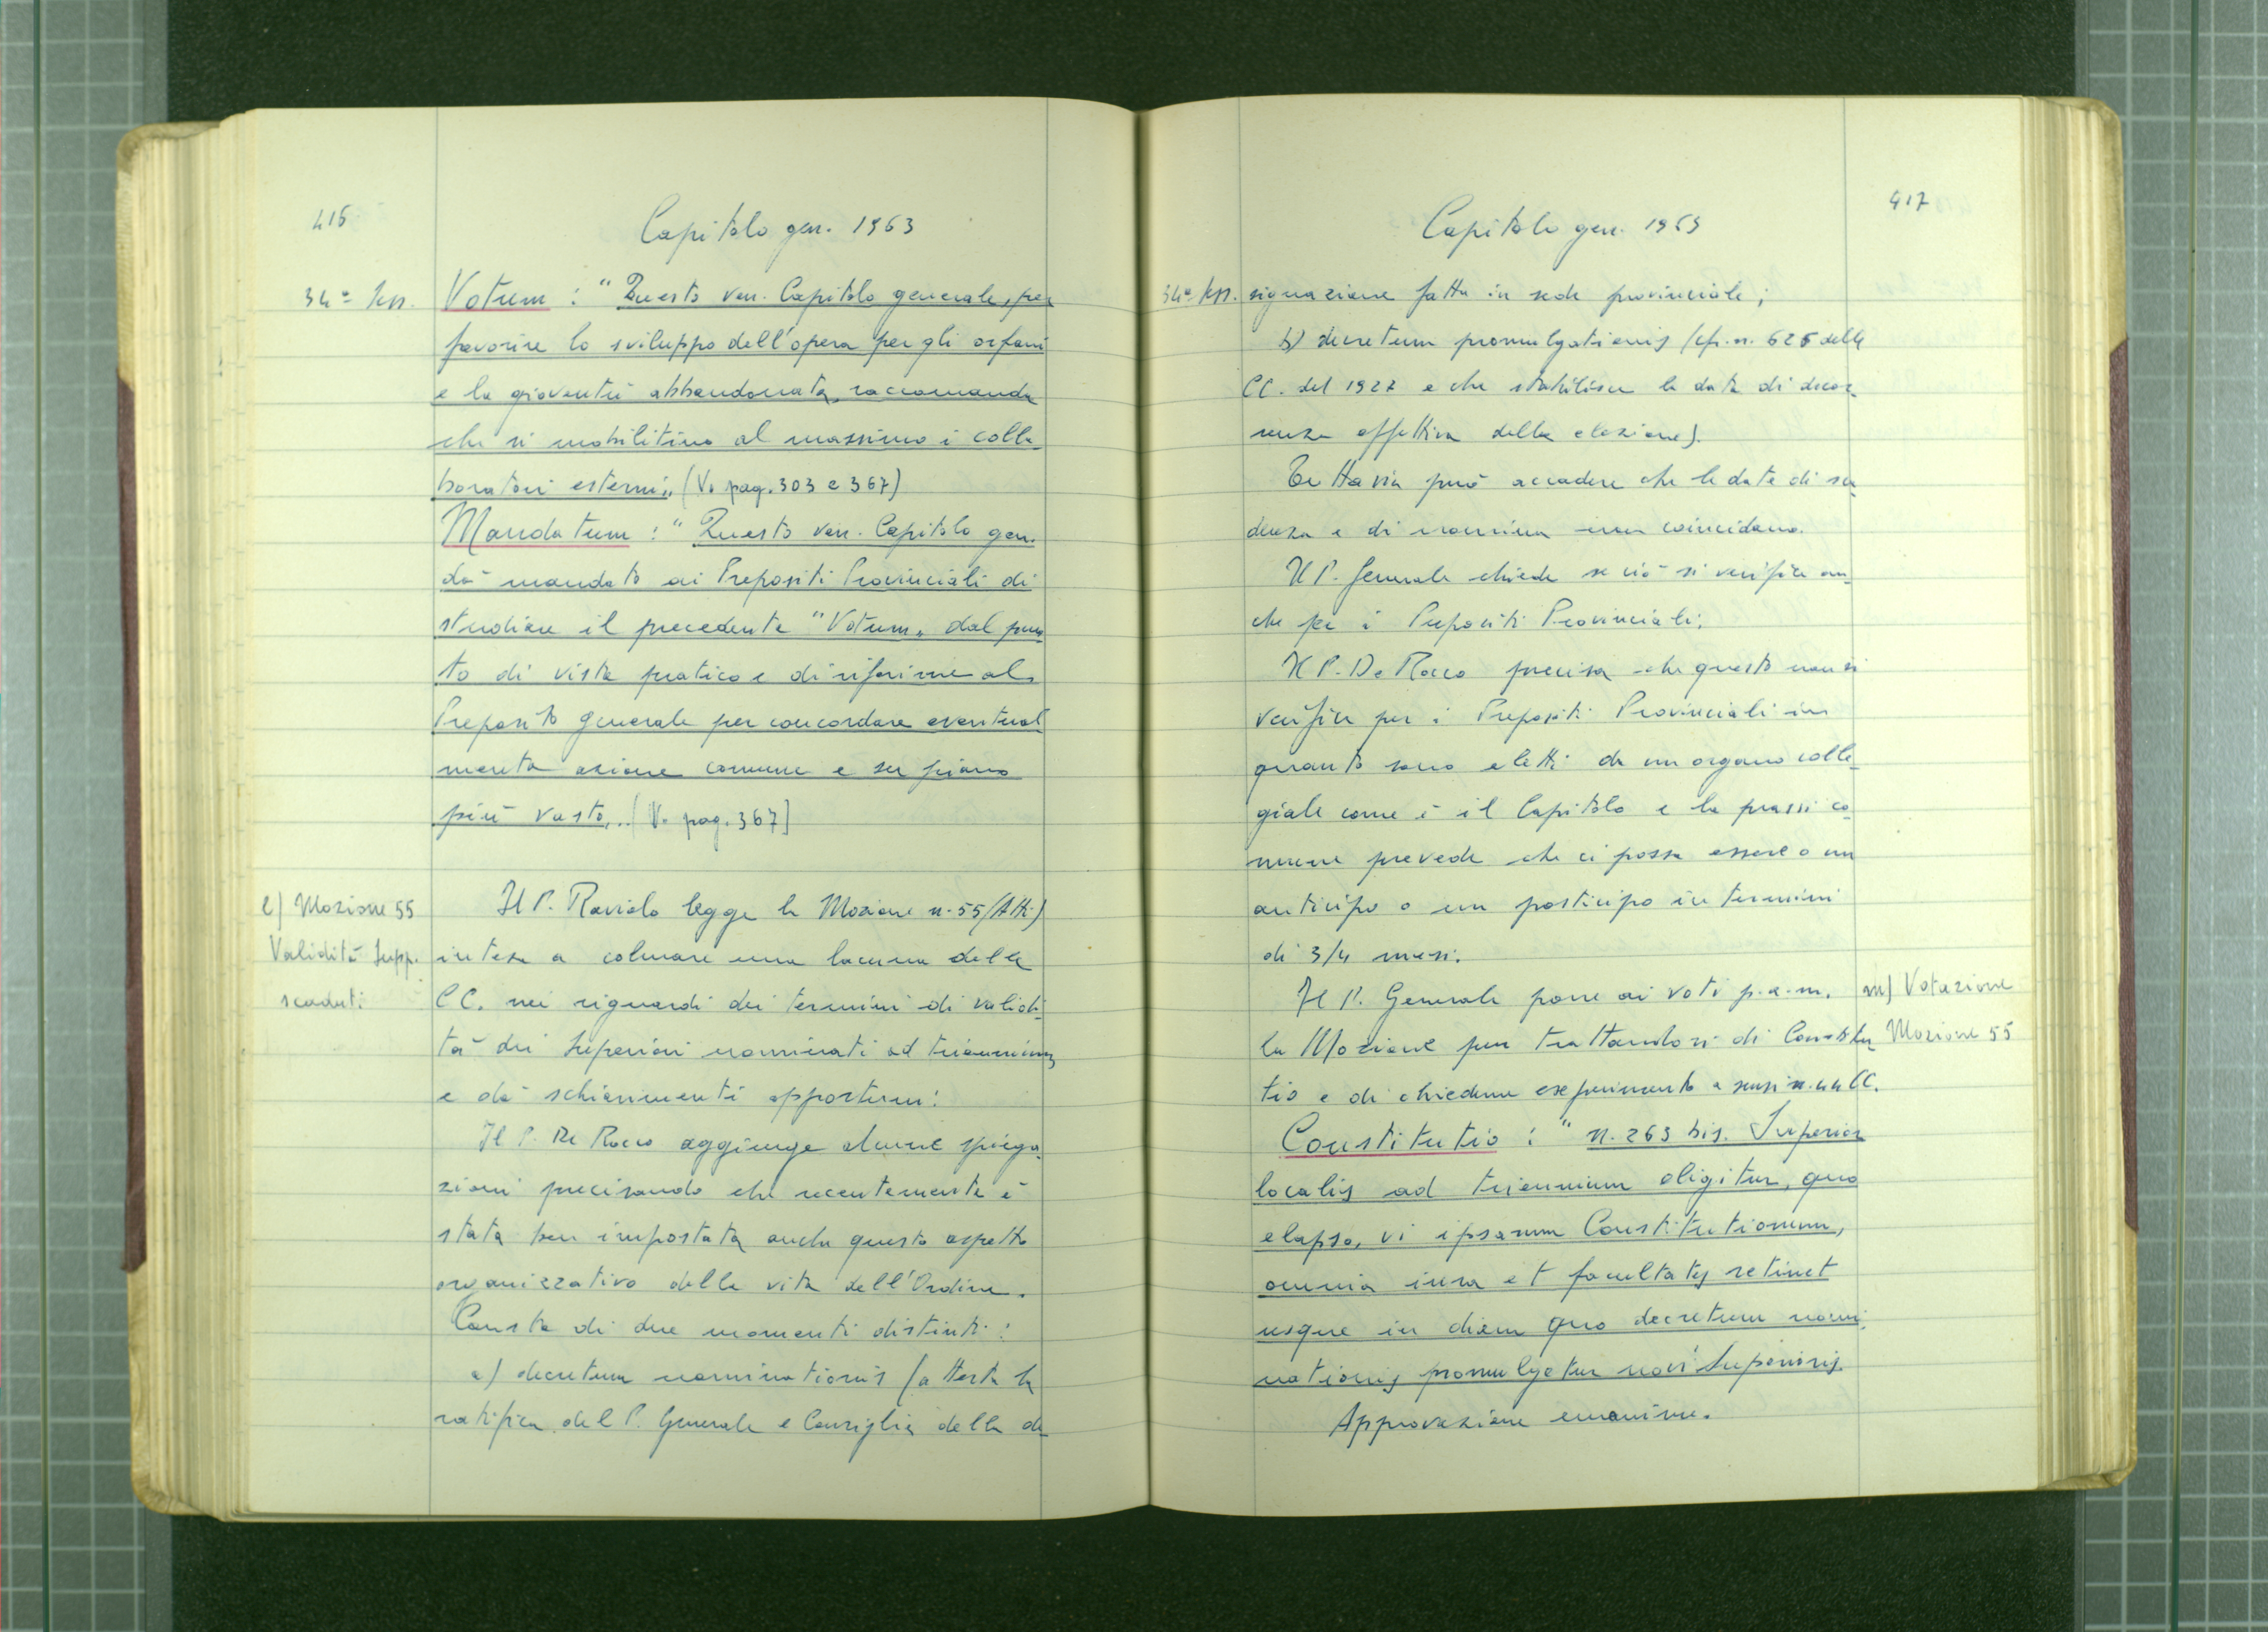 416
Capitolo gen. 1963
34ª Sess.
Votum : "Questo ven. Capitolo generale, per
favorire lo sviluppo dell'opera per gli orfani
e la gioventù abbandonata, raccomanda
che si mobilitino al massimo i colla-
boratori esterni„ (V. pag. 303 e 367)
Mandatum : "Questo ven. Capitolo gen.
dà mandato ai Prepositi Provinciali di
studiare il precedente "Votum„ dal pun-
to di vista pratico e di riferirne al
Preposito generale per concordare eventual-
mente azione comune e su piano
più vasto„. [V. pag. 367]
l) Mozione 55
Validità Supp.
scaduti
Il P. Raviolo legge la Mozione n. 55 (Atti)
intesa a colmare una lacuna delle
CC. nei riguardi dei termini di validi-
tà dei Superiori nominati ad triennium
e dà schiarimenti opportuni:
Il P. De Rocco aggiunge alcune spiega-
zioni precisando che recentemente è
stata ben impostata anche questo aspetto
organizzativo della vita dell'Ordine.
Consta di due momenti distinti:
a) decretum nominationis (attesta la
ratifica del P. Generale e Consiglio della de-
417
Capitolo gen. 1963
34ª Sess.
signazione fatta in sede provinciale;
b) decretum promulgationis (cfr. n. 626 delle
CC. del 1927 e che stabilisce la data di decor-
renza effettiva della elezione).
Tuttavia può accadere che le date di sca-
denza e di nomina non coincidano.
Il P. Generale chiede se ciò si verifica an-
che per i Prepositi Provinciali;
Il P. De Rocco precisa che questo non si
verifica per i Prepositi Provinciali in
quanto sono eletti da un organo colle-
giale come è il Capitolo e la prassi co-
mune prevede che ci possa essere o un
anticipo o un posticipo in termini
di 3/4 mesi.
m) Votazione
Mozione 55
Il P. Generale pone ai voti p.a.m.
la Mozione pur trattandosi di Constitu-
tio e di chiederne esperimento a sensi n. 44 CC.
Constitutio : "n. 263 bis. Superior
localis ad triennium eligitur, quo
elapso, vi ipsarum Constitutionum,
omnia iura et facultates retinet
usque in diem quo decretum nomi-
nationis promulgetur novi Superioris.
Approvazione unanime.